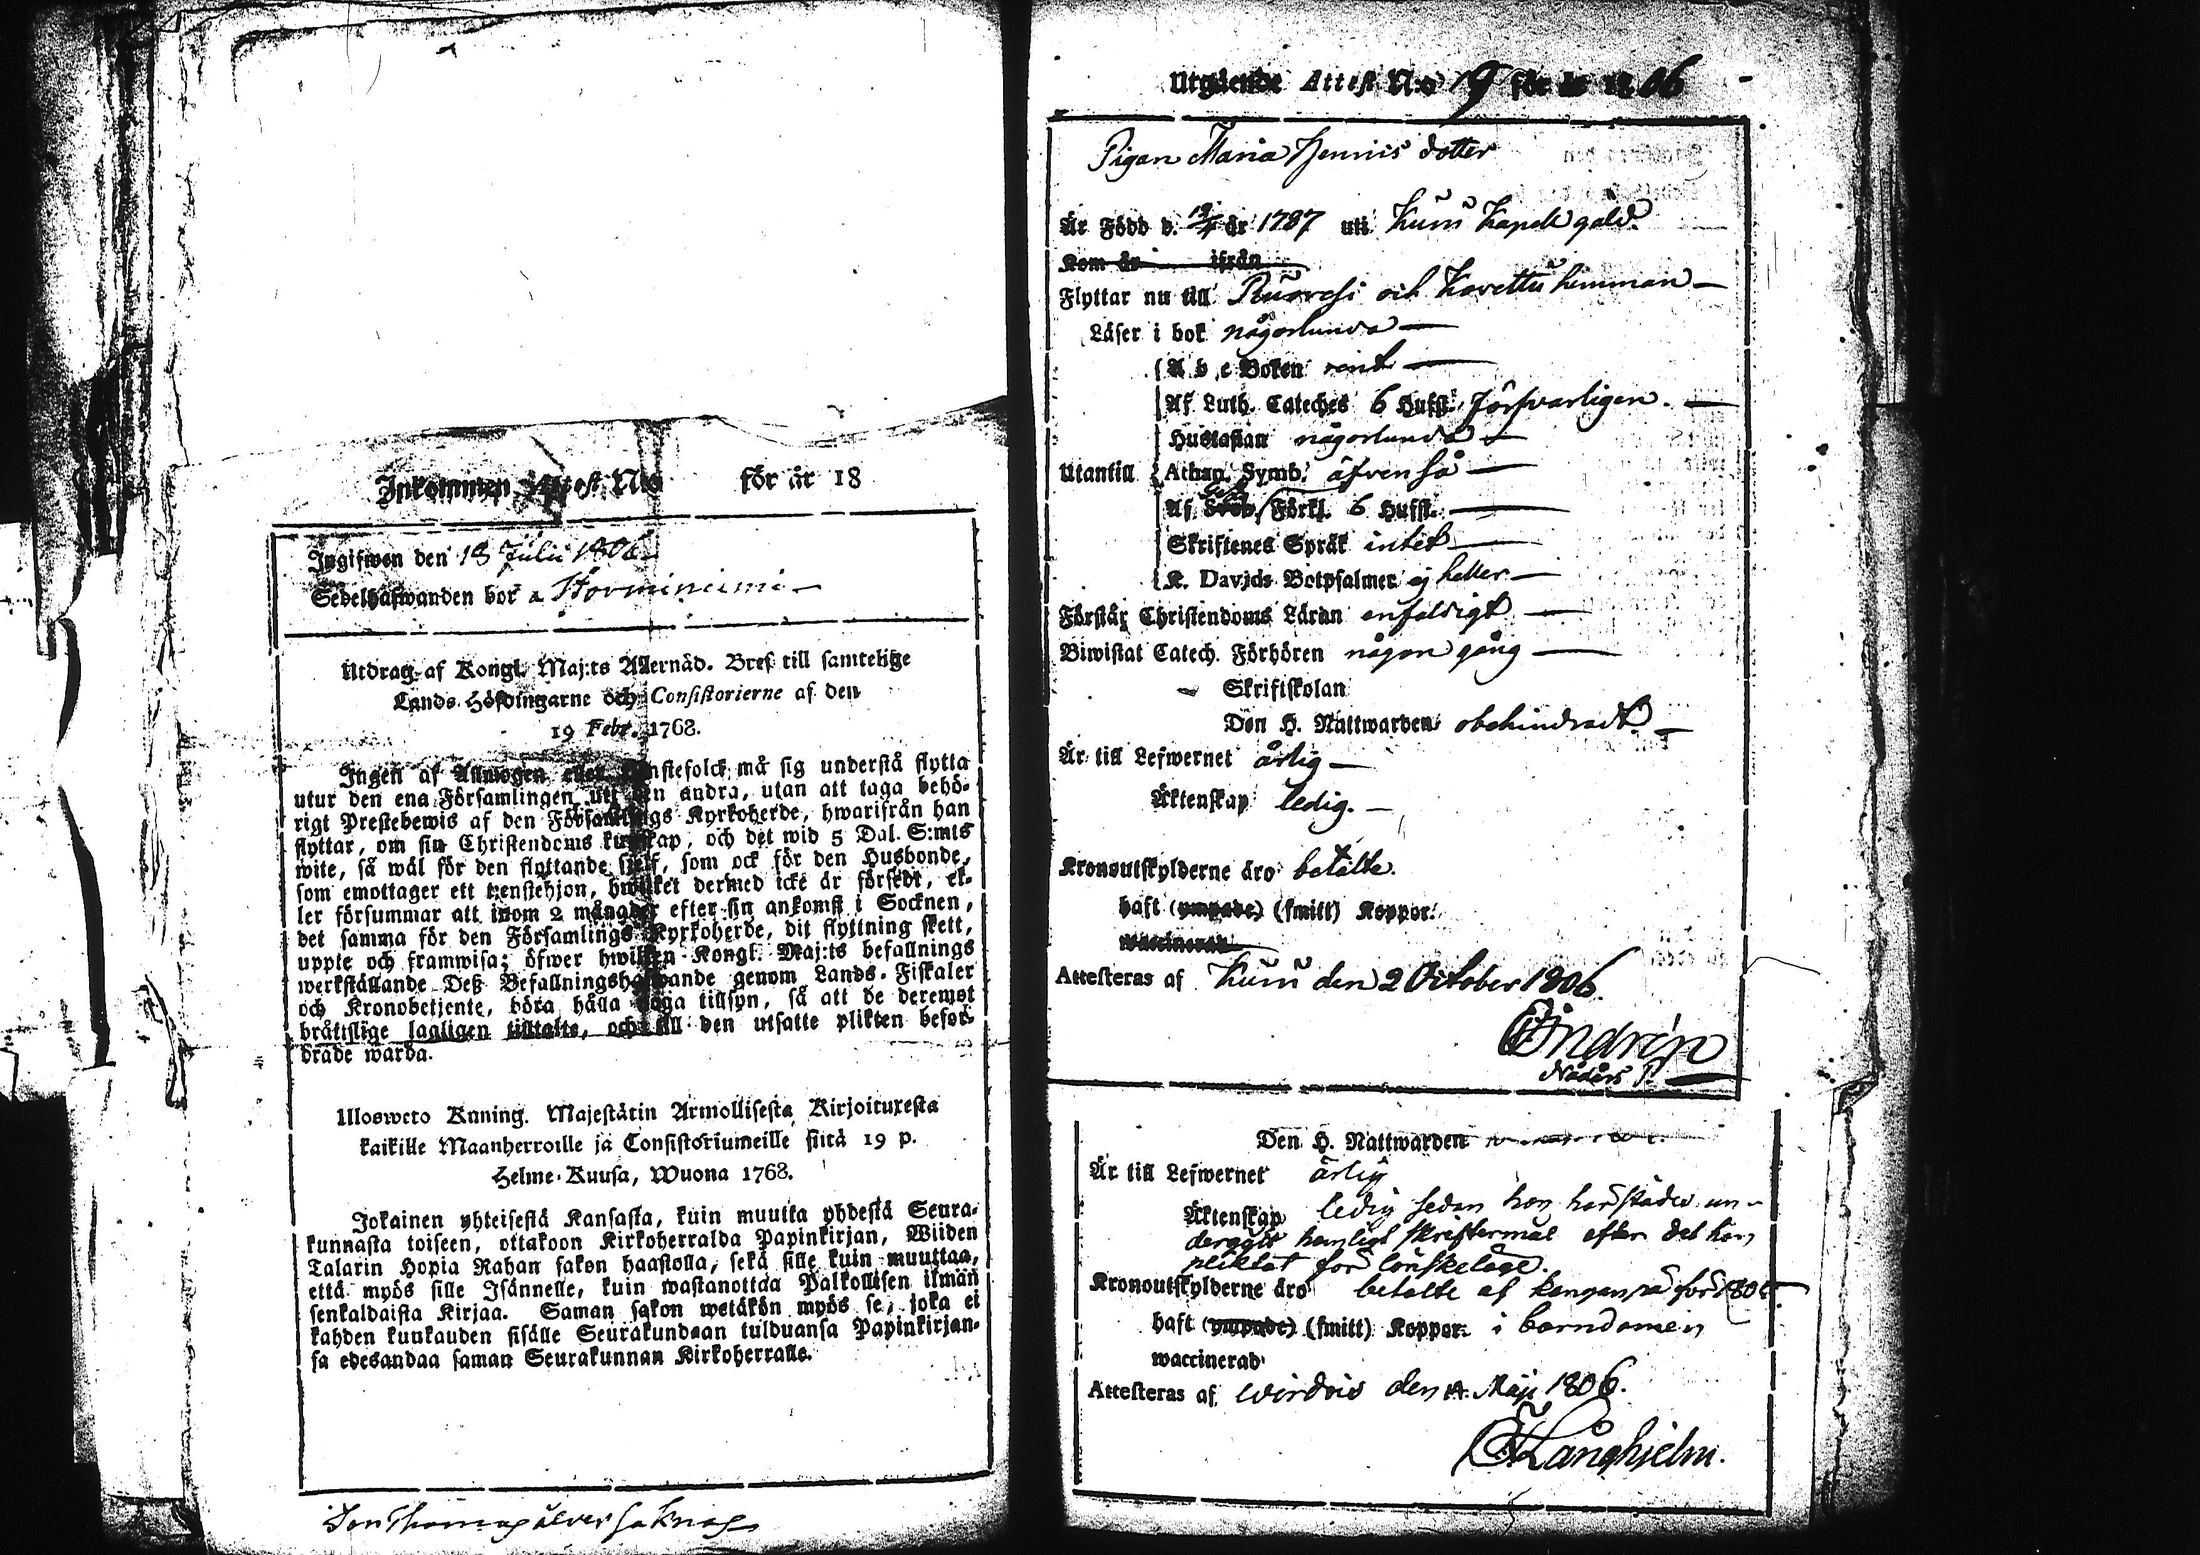 Inkommen Attest N:o för år 18
Ingifwen den 18 Julii 1806
Sedelhafwanden bor a Storminiemi
Utdrag af Kongl. Maj:ts Allernåd. Bref till samtelige
Lands-Höfdingarne och Consistorierne af den
19 Febr. 1768.
Ingen af Allmogen eller tjenstefolck må sig understå flytta
utur den ena Församlingen uti den andra, utan att taga behö-
rigt Prestebewis af den Församlings Kyrkoherde, hwarifrån han
flyttar, om sin Christendoms kunskap, och det wid 5 Dal. S:mts
wite, så wäl för den flyttande sjelf, som ock för den Husbonde,
som emottager ett tjenstehjon, hwilket dermed icke är försedt, el-
ler försummar att inom 2 månader efter sin ankomst i Socknen,
det samma för den Församlings Kyrkoherde, dit flyttning skett,
uppte och framwisa; öfwer hwilken Kongl. Maj:ts befallnings
werkställande Deß Befallningshafwande genom Lands-Fiskaler
och Kronobetjente, böra hålla noga tillsyn, så att de deremot
bråttslige lagligen tilltalte, och till den utsatte plikten befor-
drade warda.
Ulosweto Kuning. Majestätin Armollisesta Kirjoituxesta
kaikille Maanherroille ja Consistoriumeille siitä 19 p.
Helme-Kuusa, Wuona 1768.
Jokainen yhteisestä Kansasta, kuin muutta yhdestä Seura-
kunnasta toiseen, ottakoon Kirkoherralda Papinkirjan, Wiiden
Talarin Hopia Rahan sakon haastolla, sekä sille kuin muuttaa,
että myös sille Isännelle, kuin wastanottaa Palkollisen ilmän
senkaldaista Kirjaa. Saman sakon wetäkön myös se, joka ei
kahden kuukauden sisälle Seurakundaan tulduansa Papinkirjan-
sa edesandaa saman Seurakunnan Kirkoherralle.
Utgående Attest N:o 19 för år 1806
Pigan Maria Henrics dotter
Är Född d. 19/4 år 1787 uti Kuru Kapell gäld.
Kom år ifrån
Flyttar nu till Ruovesi och Kovettu hemman
Läser i bok någorlunda
A b c Boken rent
Af Luth. Cateches 6 Hufst. Försvarligen.
Hustaflan någorlunda
Utantill Athan. Symb. äfven så
Af Förkl. 6 Hufst.
Skriftenes Språk intet
K. Davids Botpsalmer ej heller
Förstår Christendoms Läran enfaldigt
Biwistat Catech. Förhören någon gång
Skriftskolan
Den H. Nattwarden obehindradt.
Är till Lefwernet ärlig
Äktenskap ledig.
Kronoutskylderne äro betalte.
haft (ympade) (smitt) Koppor.
waccinerad
Attesteras af Kuru den 2 October 1806.
Indrén
Nådårs P.
Den H. Nattwarden
Är till Lefwernet ärlig
Äktenskap ledig sedan hon härstädes un-
dergått hemligt skriftermål efter det hon
pliktat för lönskeläge.
Kronoutskylderne äro betalte af för 180
haft (ympade) (smitt) Koppor i barndomen
waccinerad
Attesteras af Wirdois den Maji 1806.
Långhjelm.